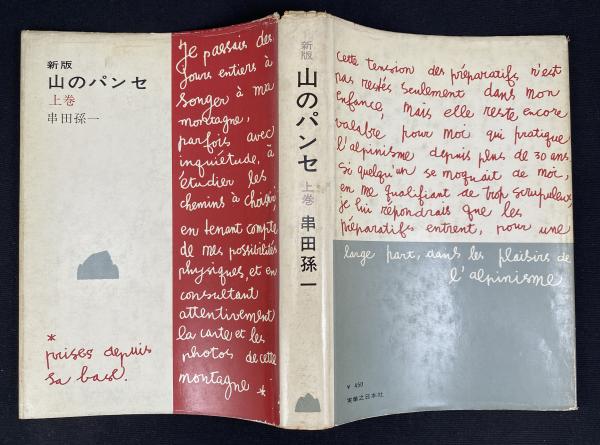 新版
山のパンセ
上巻
串田孫一
Je passais des
jours entiers à
songer à ma
montagne,
parfois avec
inquiétude, à
étudier les
chemins à choisir,
en tenant compte
de mes possibilités
physiques, et en
consultant
attentivement
la carte et les
photos de cette
montagne *
* prises depuis
sa base.
新版
山のパンセ
上巻
串田孫一
Cette tension des préparatifs n'est
pas restée seulement dans mon
enfance, mais elle reste encore
valable pour moi qui pratique
l'alpinisme depuis plus de 30 ans
Si quelqu'un se moquait de moi,
en me qualifiant de trop scrupuleux,
je lui répondrais que les
préparatifs entrent, pour une
large part, dans les plaisirs de
l'alpinisme
¥ 450
実業之日本社